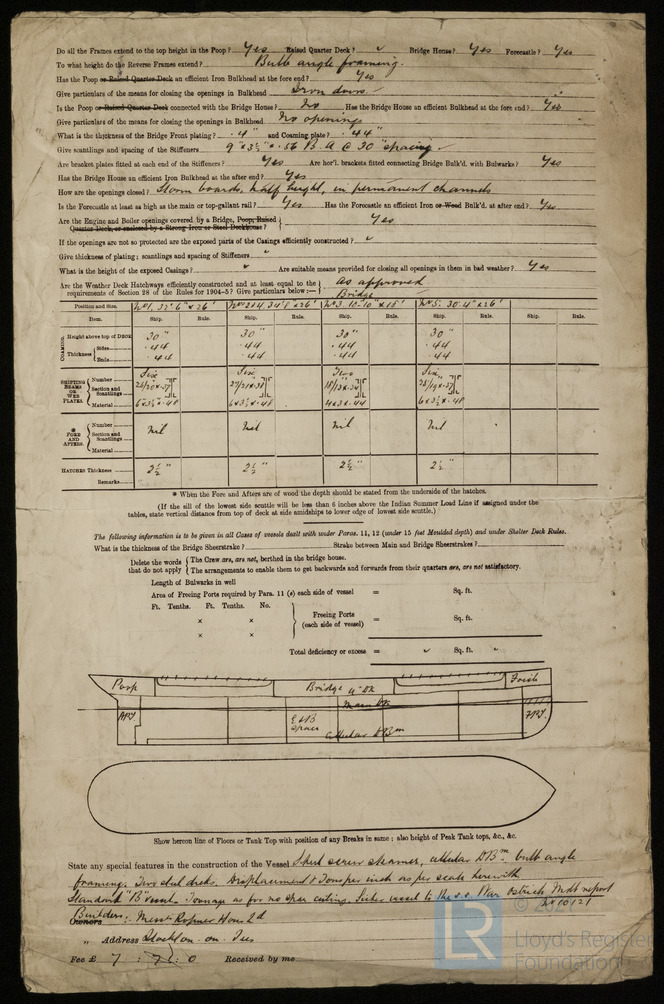 Do all the Frames extend to the top height in the Poop? Yes Raised Quarter Deck? Bridge House? Yes Forecastle? Yes
To what height do the Reverse Frames extend? Bulb angle framing.
Has the Poop or Raised Quarter Deck an efficient Iron Bulkhead at the fore end? Yes
Give particulars of the means for closing the openings in Bulkhead Iron doors.
Is the Poop or Raised Quarter Deck connected with the Bridge House? No Has the Bridge House an efficient Bulkhead at the fore end? Yes
Give particulars of the means for closing the openings in Bulkhead No openings
What is the thickness of the Bridge Front plating? .4" and Coaming plate? .44"
Give scantlings and spacing of the Stiffeners 9" x 3½" x .56 B A @ 30" spacing
Are bracket plates fitted at each end of the Stiffeners? Yes Are hor'l. brackets fitted connecting Bridge Bulk'd. with Bulwarks? Yes
Has the Bridge House an efficient Iron Bulkhead at the after end? Yes
How are the openings closed? Storm boards, half height, in permanent channels
Is the Forecastle at least as high as the main or top-gallant rail? Yes Has the Forecastle an efficient Iron or Wood Bulk'd. at after end? Yes
Are the Engine and Boiler openings covered by a Bridge, Poop, Raised
Quarter Deck, or enclosed by a Strong Iron or Steel Deckhouse? Yes
If the openings are not so protected are the exposed parts of the Casings efficiently constructed?
Give thickness of plating; scantlings and spacing of Stiffeners
What is the height of the exposed Casings? Are suitable means provided for closing all openings in them in bad weather? Yes
Are the Weather Deck Hatchways efficiently constructed and at least equal to the
requirements of Section 28 of the Rules for 1904-5? Give particulars below:— as approved
Bridge
Position and Size. No 1, 32'.6" x 26' No 2 & 4 34'.8" x 26' No 3 10'.10" x 18' No 5. 30'.4" x 26'
Item. Ship. Rule. Ship. Rule. Ship. Rule. Ship. Rule. Ship. Rule.
COAMING. Height above top of DECK 30" 30" 30" 30"
Thickness Sides .44 .44 .44 .44
Ends .44 .44 .44 .44
SHIFTING BEAMS OR WEB PLATES. Number Six Six Two Six
Section and Scantlings
Material 6 x 3½ x .48 6 x 3½ x .48 4 x 3 x .44 6 x 3½ x .48
* FORE AND AFTERS. Number
Section and Scantlings Nil Nil Nil Nil
Material
HATCHES Thickness 2½" 2½" 2½" 2½"
Remarks
* When the Fore and Afters are of wood the depth should be stated from the underside of the hatches.
(If the sill of the lowest side scuttle will be less than 6 inches above the Indian Summer Load Line if assigned under the
tables, state vertical distance from top of deck at side amidships to lower edge of lowest side scuttle.)
The following information is to be given in all Cases of vessels dealt with under Paras. 11, 12 (under 15 feet Moulded depth) and under Shelter Deck Rules.
What is the thickness of the Bridge Sheerstrake? Strake between Main and Bridge Sheerstrakes?
Delete the words The Crew are, are not, berthed in the bridge house.
that do not apply The arrangements to enable them to get backwards and forwards from their quarters are, are not satisfactory.
Length of Bulwarks in well
Area of Freeing Ports required by Para. 11 (e) each side of vessel = Sq. ft.
Ft. Tenths. Ft. Tenths. No.
× × Freeing Ports
(each side of vessel) = Sq. ft.
× ×
Total deficiency or excess = Sq. ft.
Poop Bridge U Dk Fxcsle
Main Dk
APT E & B Space Cellular DBm FPT.
Show hereon line of Floors or Tank Top with position of any Breaks in same; also height of Peak Tank tops, &c., &c.
State any special features in the construction of the Vessel Steel screw steamer, cellular DBm. bulb angle
framing, Two steel decks. Displacement & Tons per inch as per scale herewith
Standard "B" vessel. Tonnage as for no spar ceiling. Sister vessel to the s.s. War Ostrich Mdb report
No 10121
Owners Builders:- Messrs Ropner & Sons Ld
" Address Stockton-on-Tees
Fee £ 7 : 7 : 0 Received by me
© 2021
LR
Lloyd's Register
Foundation